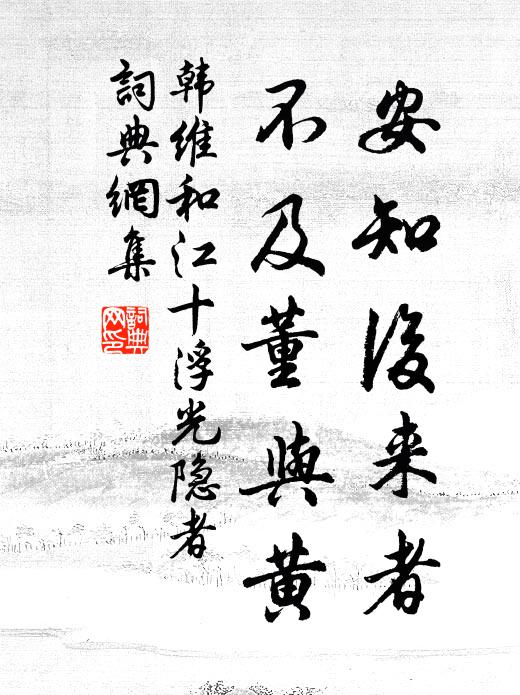 安知後来者
不及董與黄
韩维和江十浮光隐者
詞典網集
詞典
网印